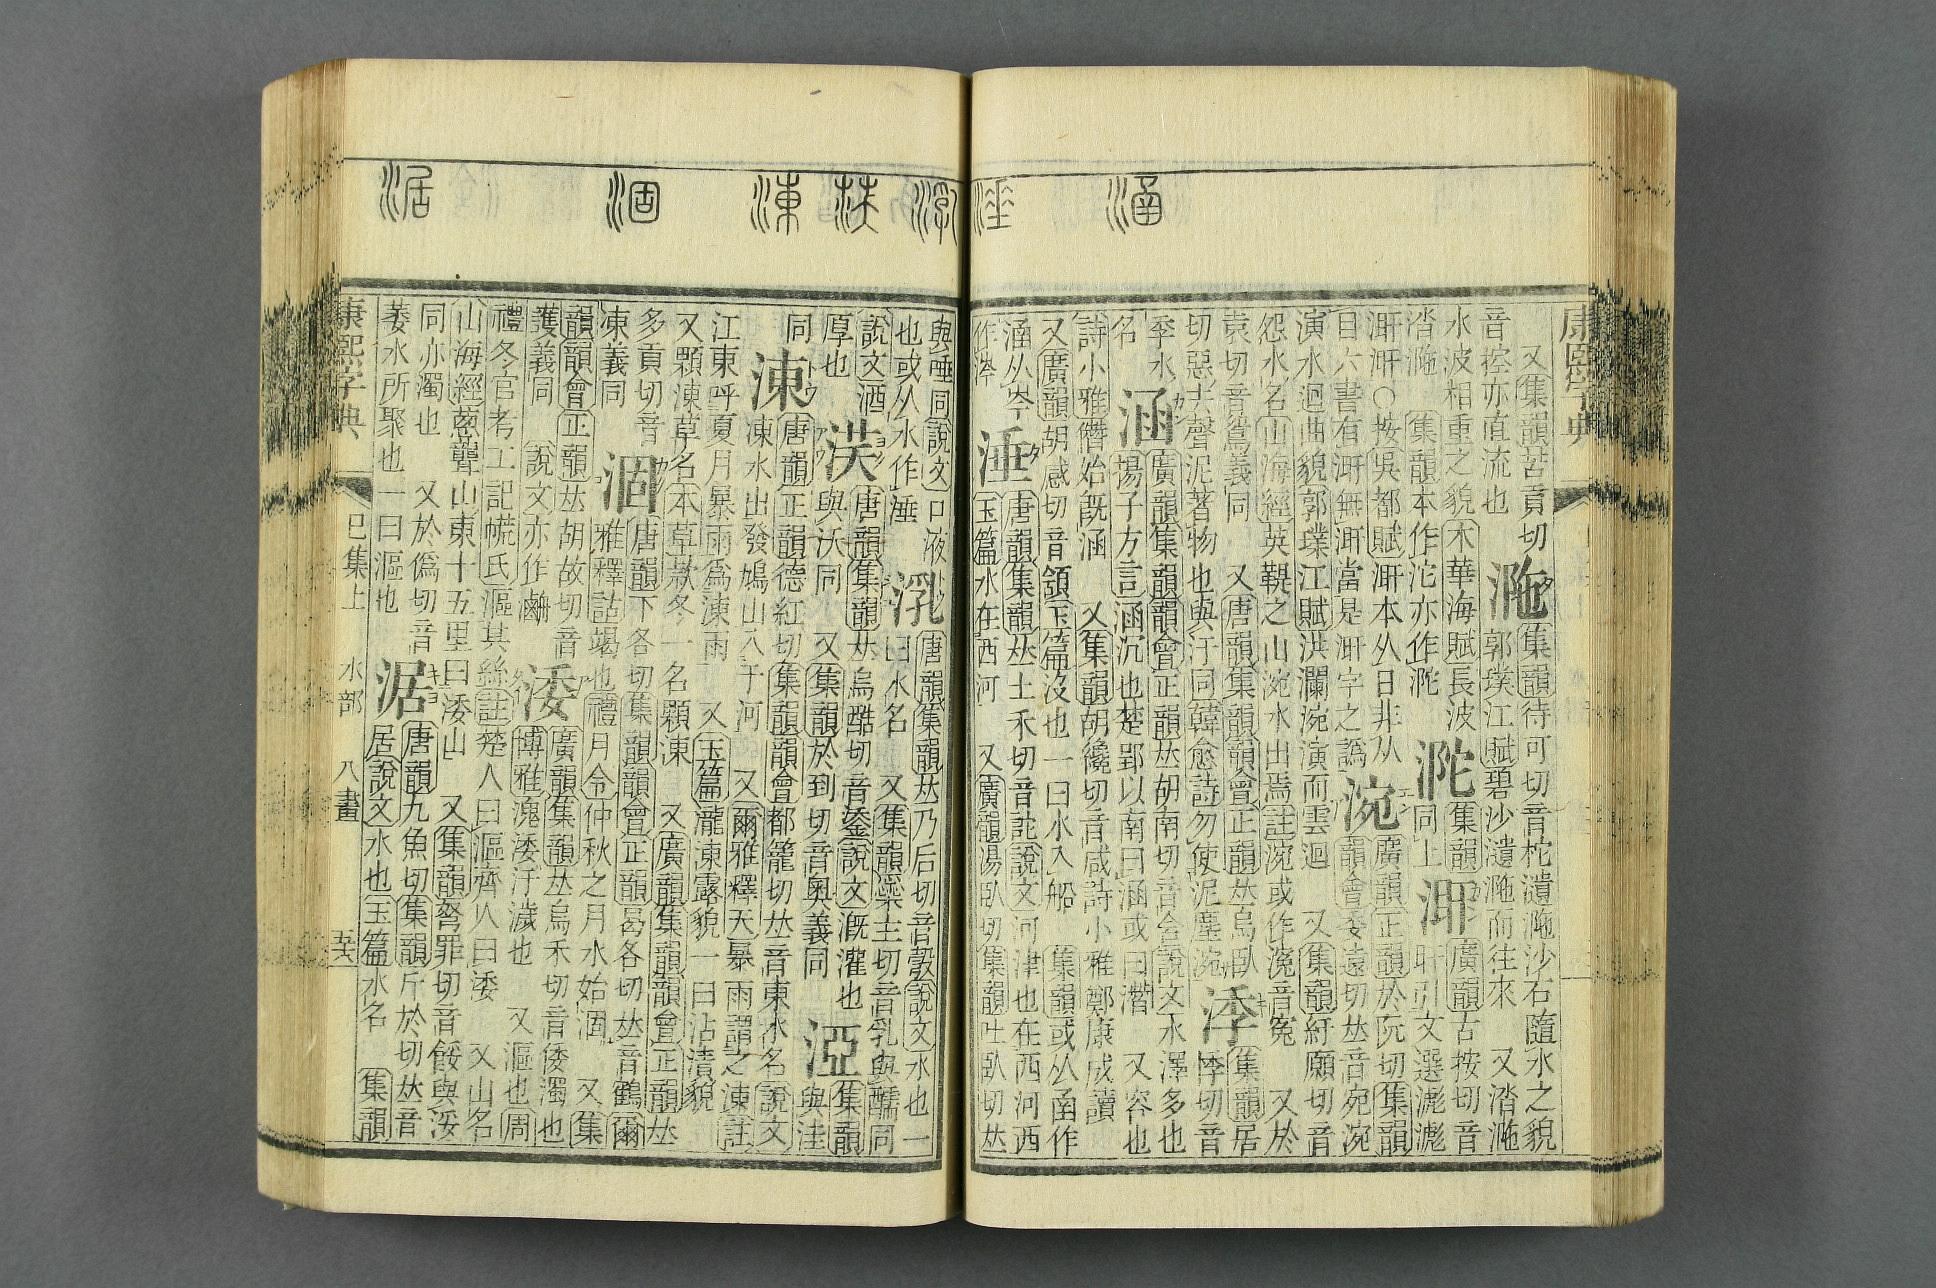 涵 涶
康熙字典
又集韻苦貢切
音控亦直流也
集韻待可切音柁潰沙石隨水之貌
郭璞江賦碧沙瀢而往來 又涾
水波相重之貌木華海賦長波
涾 集韻本作沱亦作
集韻
同上
涆
廣韻古按切音
旰引文選滮滮
涆涆○按吳都賦涆本从日非从
目六書有涆無涆當是涆字之譌
涴
廣韻正韻於阮切集韻
韻會委遠切𠀤音宛涴
演水迴曲貌郭璞江賦洪瀾涴演而雲迴 又集韻紆願切音
怨水名山海經英鞮之山涴水出焉註涴或作涴音冤 又於
袁切音鴛義同 又唐韻集韻韻會正韻𠀤烏臥
切惡去聲泥著物也與汙同韓愈詩勿使泥塵涴
集韻居
悸切音
季水
名
涵
廣韻集韻韻會正韻𠀤胡南切音含說文水澤多也
揚子方言涵沉也楚郢以南曰涵或曰潛 又容也
詩小雅僭始旣涵 又集韻胡讒切音咸詩小雅鄭康成讀
又廣韻胡感切音頷玉篇沒也一曰水入船 集韻或从函作
涵从岑
作涔
涶
唐韻集韻𠀤土禾切音詑說文河津也在西河西
玉篇水在西河 又廣韻湯臥切集韻吐臥切𠀤
涷 涸 涺
與唾同說文口液
也或从水作涶
唐韻集韻𠀤乃后切音㝅說文水也一
曰水名 又集韻蘂主切音乳與醹同
說文酒
厚也
唐韻集韻𠀤烏酷切音鋈說文漑灌也
與沃同 又集韻於到切音奧義同
涯
集韻
與洼
同
涷
唐韻正韻德紅切集韻韻會都籠切𠀤音東水名說文
涷水出發鳩山入于河 又爾雅釋天暴雨謂之涷註
江東呼夏月暴雨爲涷雨 又玉篇瀧涷露貌一曰沾漬貌
又顆涷草名本草款冬一名顆涷 又廣韻集韻韻會正韻𠀤
多貢切音
凍義同
涸
唐韻下各切集韻韻會正韻曷各切𠀤音鶴爾
雅釋詁竭也禮月令仲秋之月水始涸 又集
韻韻會正韻𠀤胡故切音
護義同 說文亦作
涹
廣韻集韻𠀤烏禾切音倭濁也
博雅溾涹汙濊也 又漚也周
禮冬官考工記㡛氏漚其絲註楚人曰漚齊人曰涹 又山名
山海經蔥聾山東十五里曰涹山 又集韻弩罪切音餒與浽
同亦濁也 又於僞切音
萎水所聚也一曰漚也
涺
唐韻九魚切集韻斤於切𠀤音
居說文水也玉篇水名 集韻
康熙字典 巳集上 水部 八畫 五十六